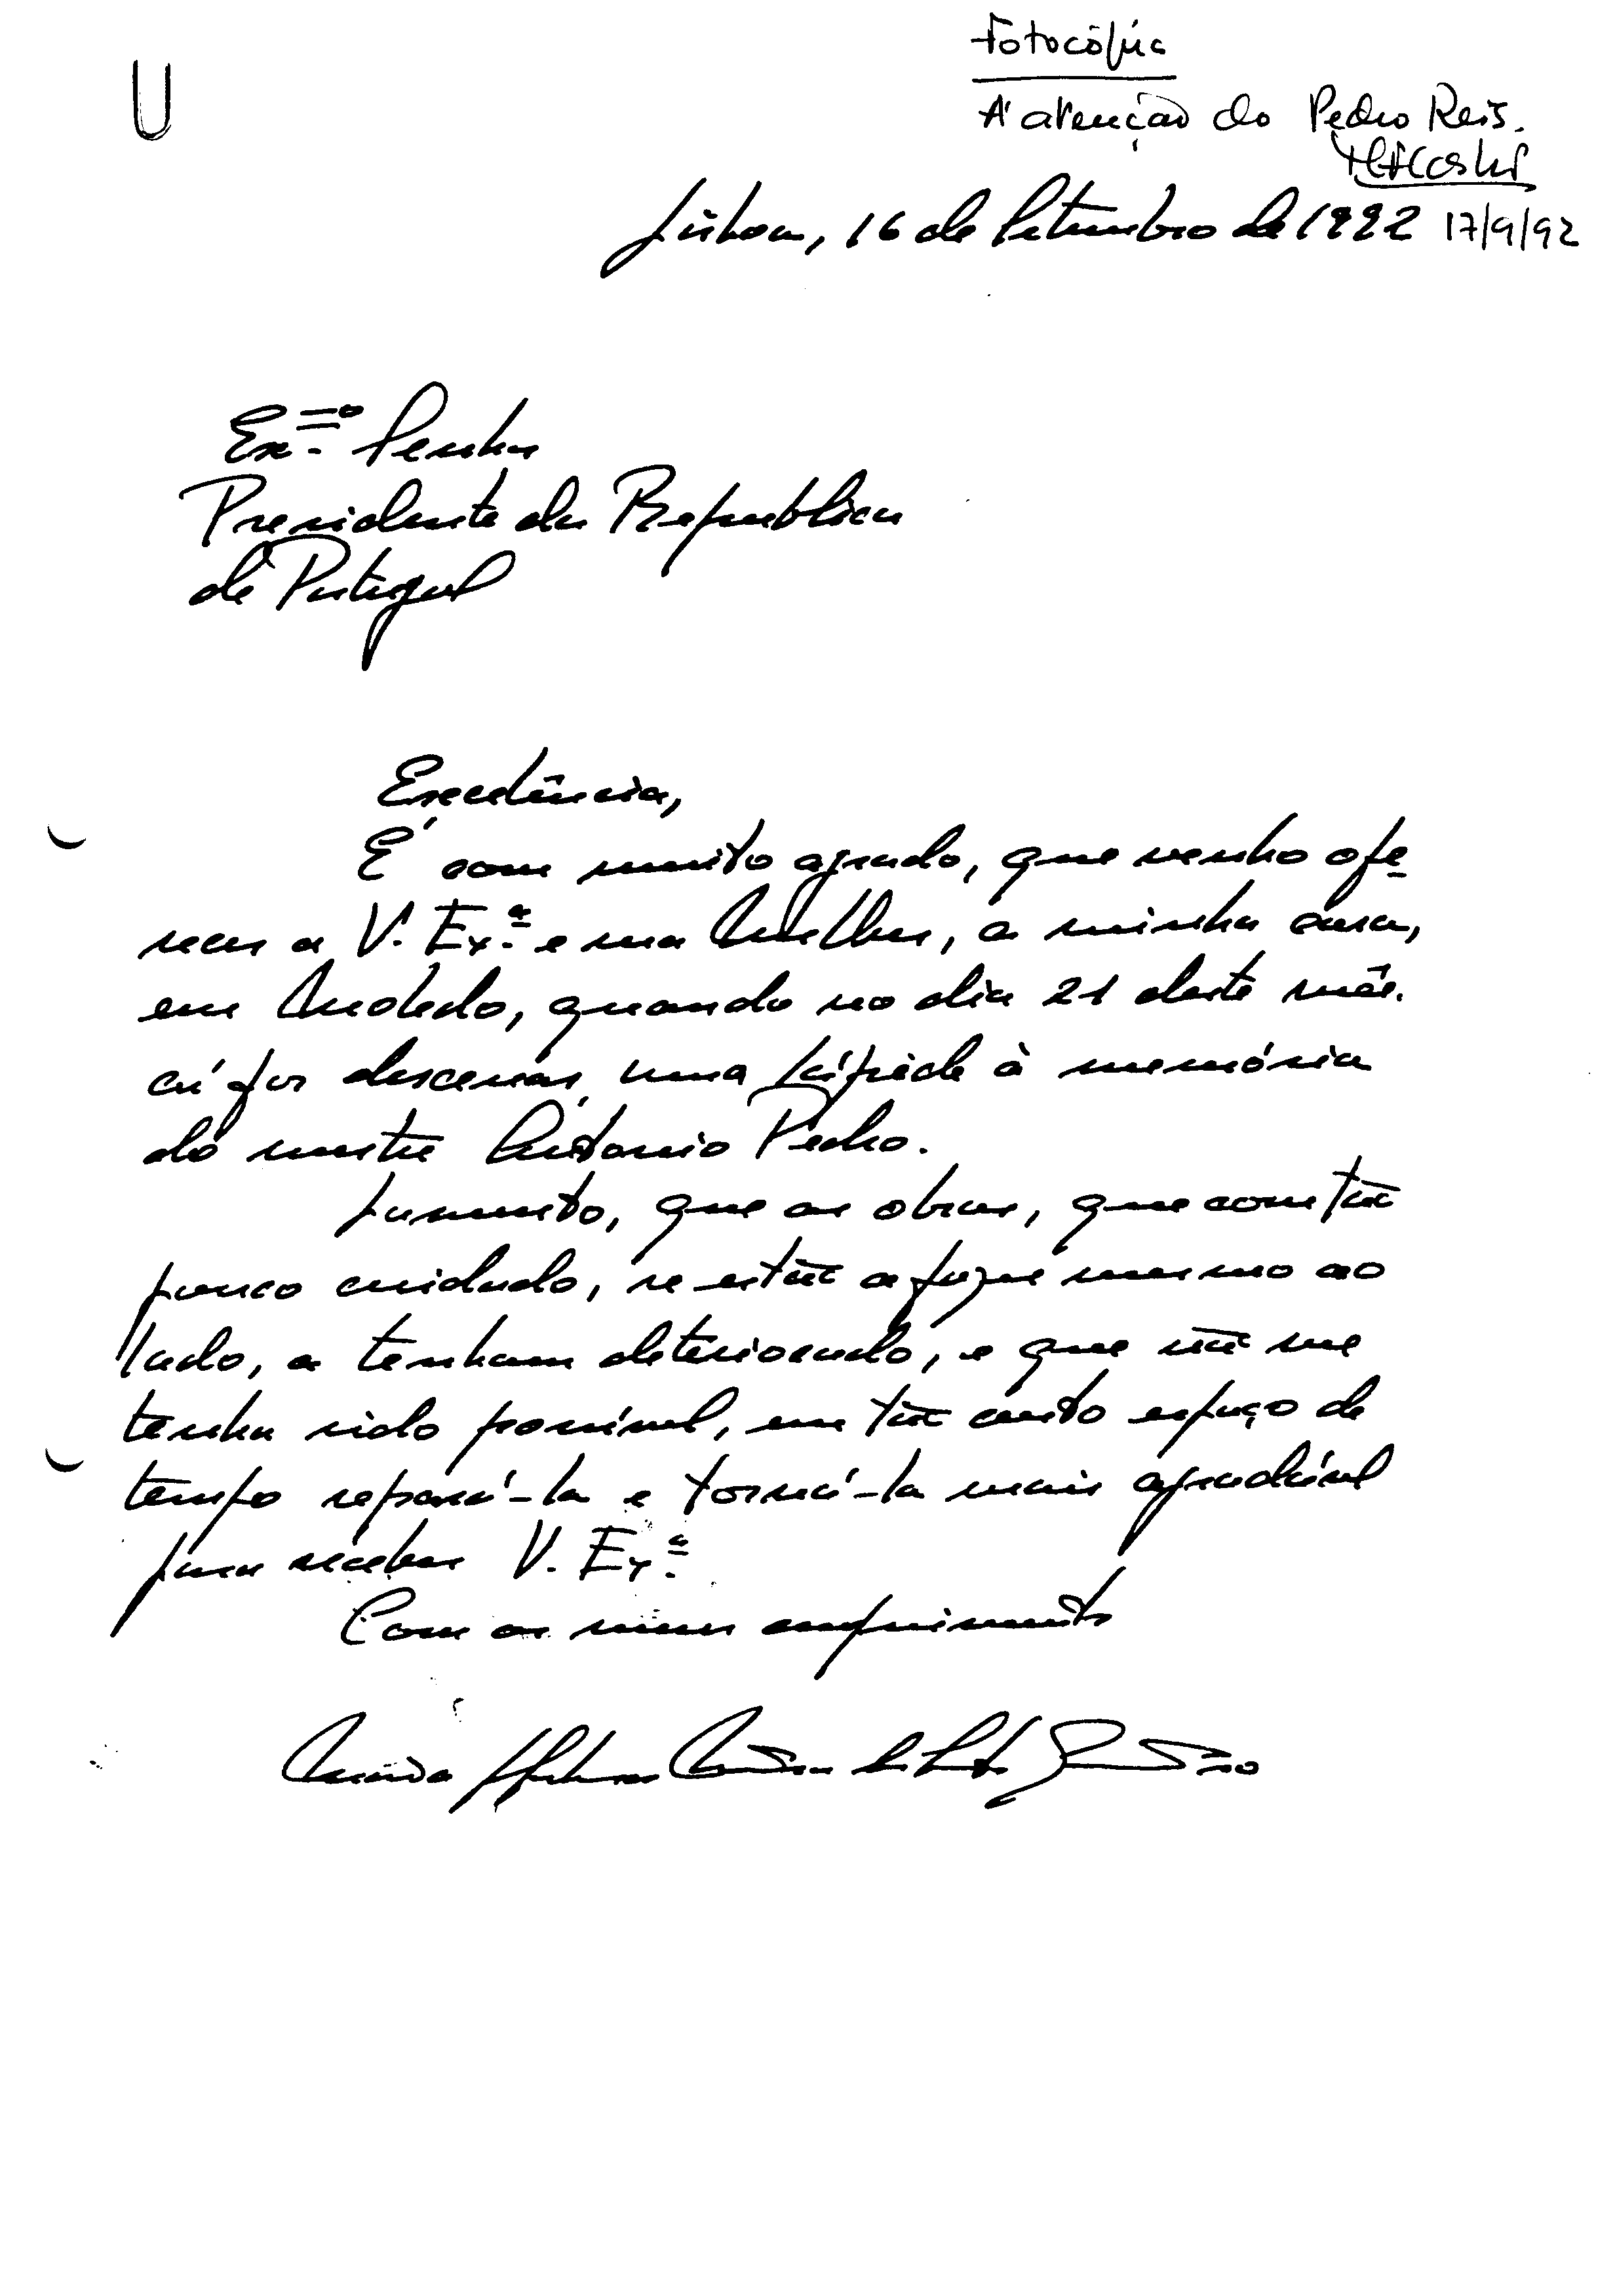 Fotocópia
A atenção do Pedro Reis.
17/9/92
Lisboa, 16 de Setembro de 1992
Ex.mo Senhor
Presidente da Republica
de Portugal
Excelência,
É com muito agrado, que venho ofe
recer a V. Ex.ª e sua Mulher, a minha casa,
em Moledo, quando no dia 21 deste mês.
aí for descerrar, uma lápide à memória
do mestre António Pedro.
Lamento, que as obras, que com tão
pouco cuidado, se estão a fazer mesmo ao
lado, a tenham deteriorado, e que não me
tenha sido possível, em tão curto espaço de
tempo repará-la e torná-la mais agradável
para receber V. Ex.ª
Com os meus cumprimentos
Maria